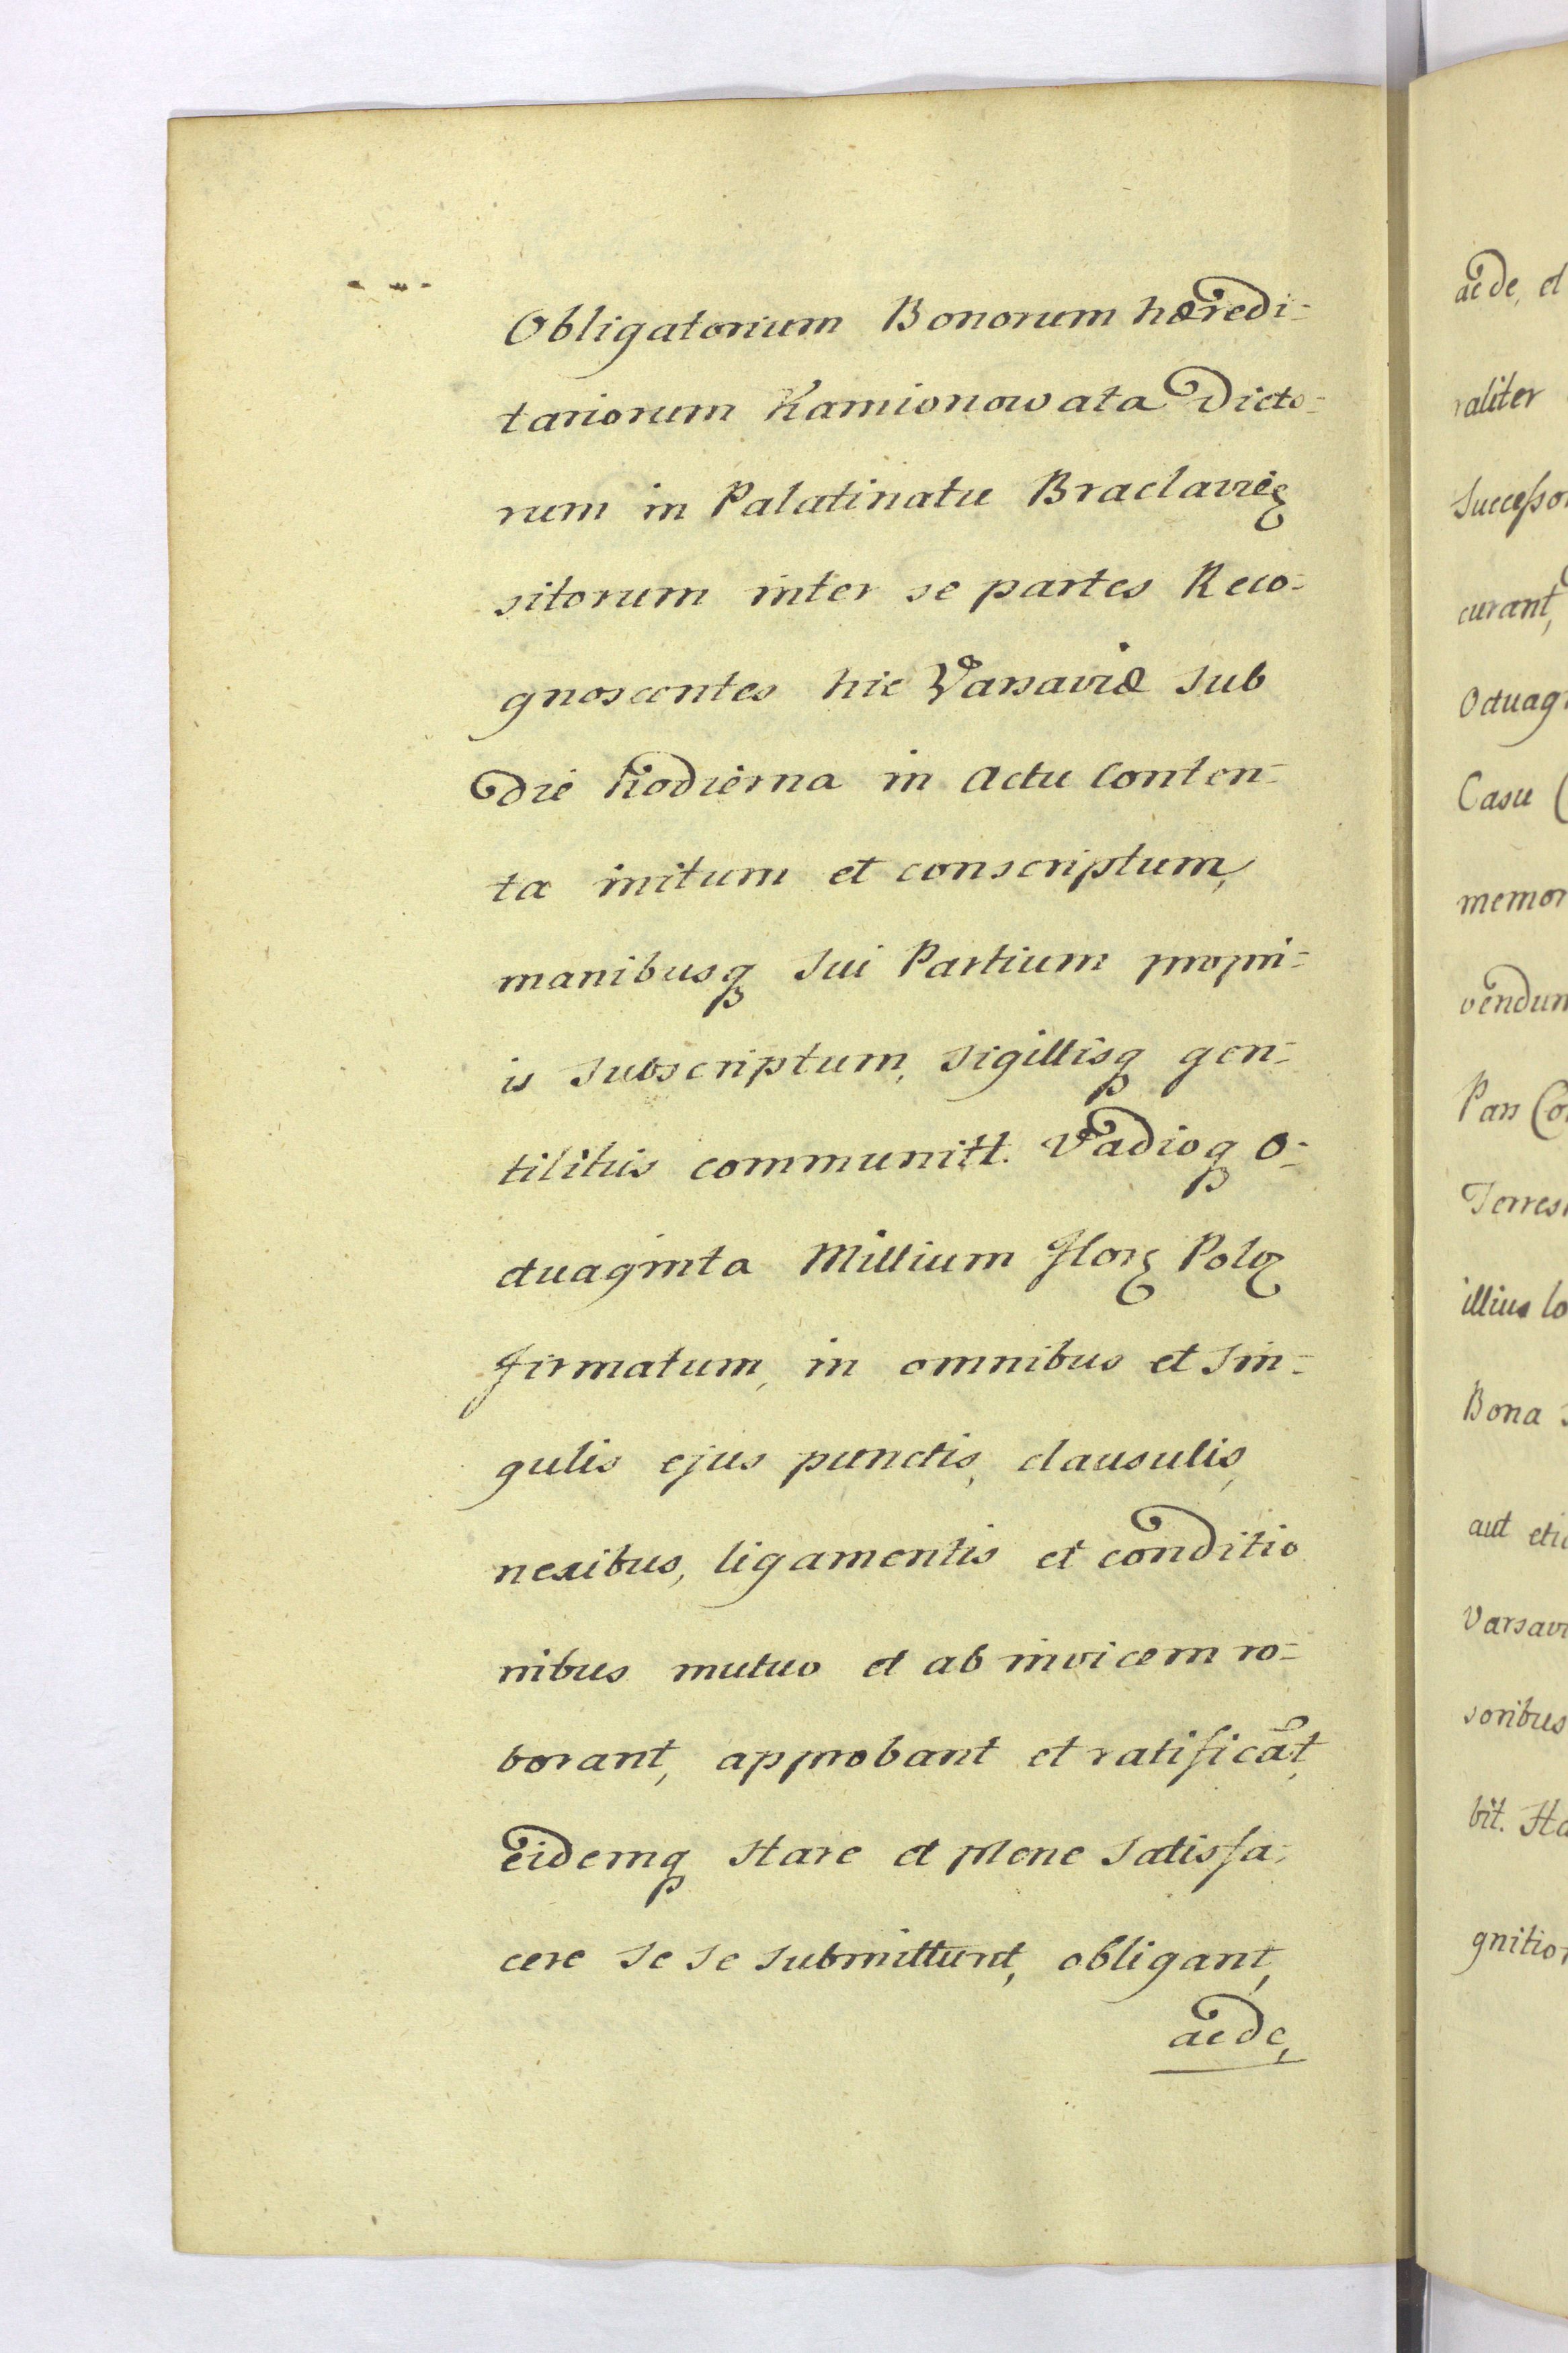 Obligatorium Bonorum hæredi=
tariorum Kamionowata Dicto=
rum in Palatinatu Braclavieꝫ
sitorum inter se partes Reco=
gnoscentes hic Varsaviæ sub
die hodierna in Actu conten=
ta initum et conscriptum,
manibusqꝫ sui Partium propri=
is subscriptum, sigillisqꝫ gen=
tilitiis communitt. Vadioqꝫ O=
ctuaginta Millium Florꝫ Polꝫ
firmatum, in omnibus et sin=
gulis ejus punctis, clausulis,
nexibus, ligamentis et conditio
nibus mutuo et ab invicem ro=
borant, approbant et ratificãt,
eidemqꝫ stare et plene satisfa=
cere se se submittunt, obligant,
aede,
aede, et
raliter
Successo
curant,
Octuag
Casu
memor
vendum
Pars Co
Terres
illius lo
Bona
aut eti
Varsavi
soribus
bit. Ha
gnition